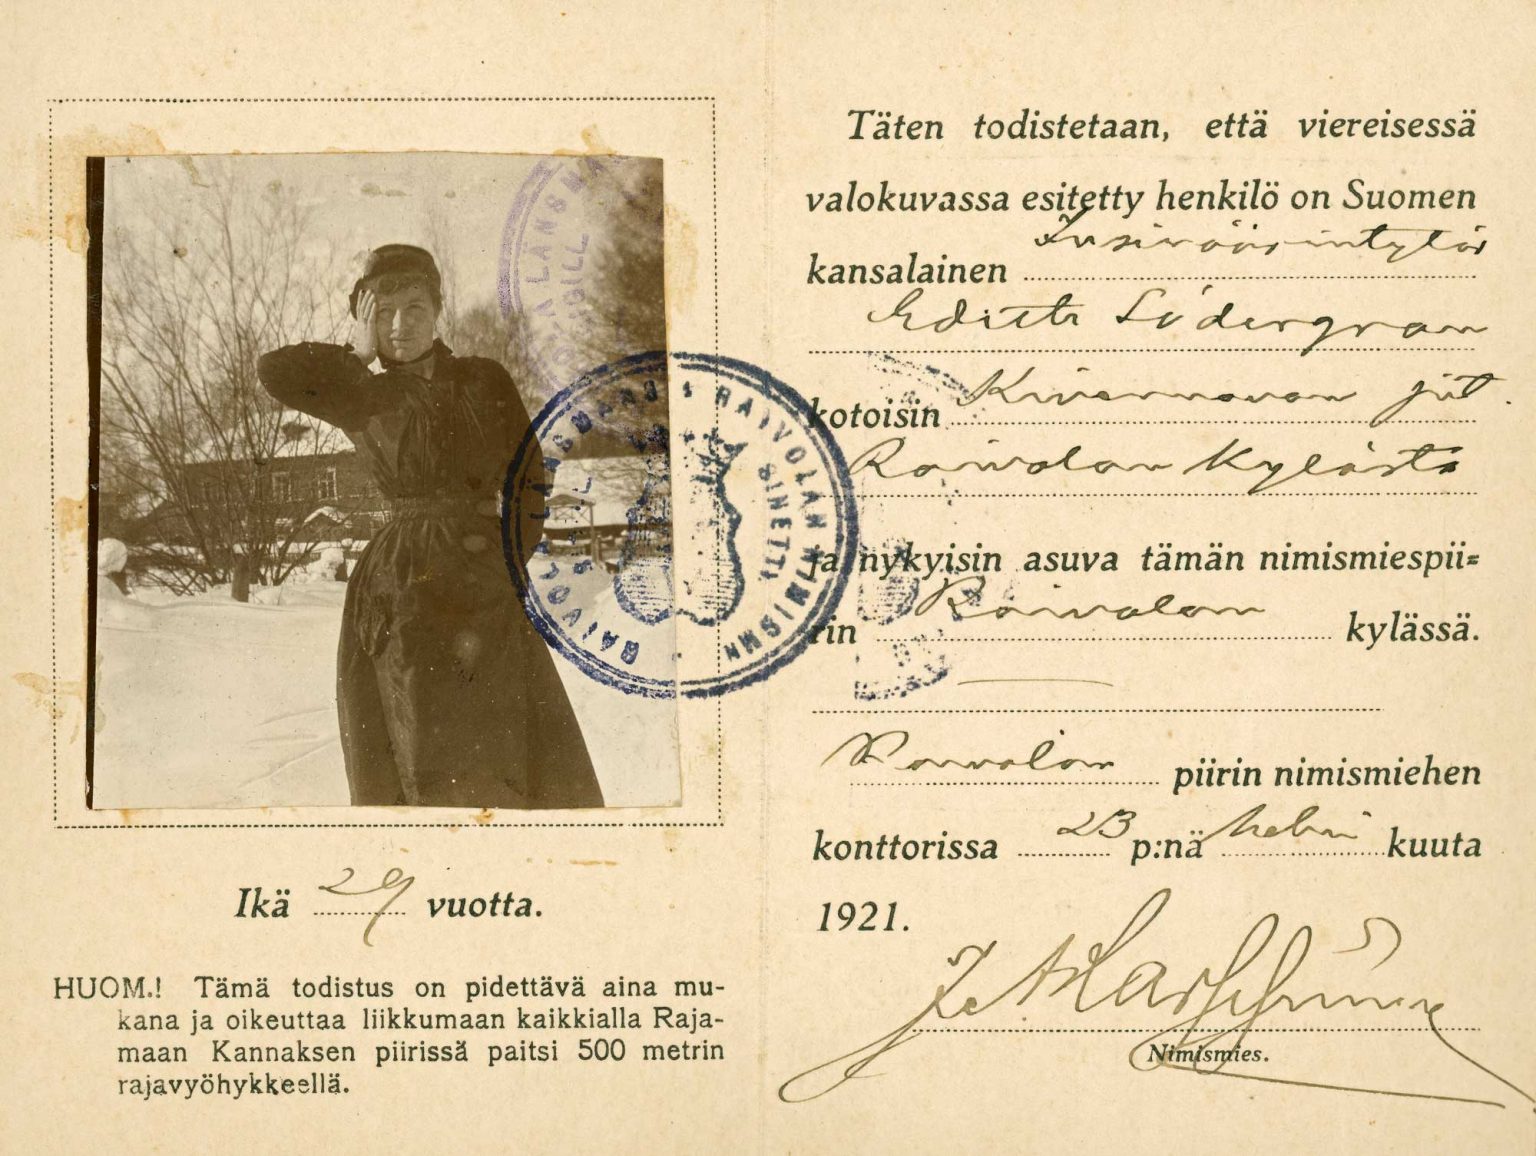 Ikä 29 vuotta.
HUOM.! Tämä todistus on pidettävä aina mu-
kana ja oikeuttaa liikkumaan kaikkialla Raja-
maan Kannaksen piirissä paitsi 500 metrin
rajavyöhykkeellä.
Täten todistetaan, että viereisessä
valokuvassa esitetty henkilö on Suomen
kansalainen Insinöörintytär
Edith Södergran
kotoisin Kivennavan pit.
Raivolan Kylästä
ja nykyisin asuva tämän nimismiespii=
rin Raivolan kylässä.
Raivolan piirin nimismiehen
konttorissa 23 p:nä helmi kuuta
1921.
Nimismies.
RAIVOLA LÄNSMANS
RAIVOLAN NIMISMN
SINETTI
SIGILL